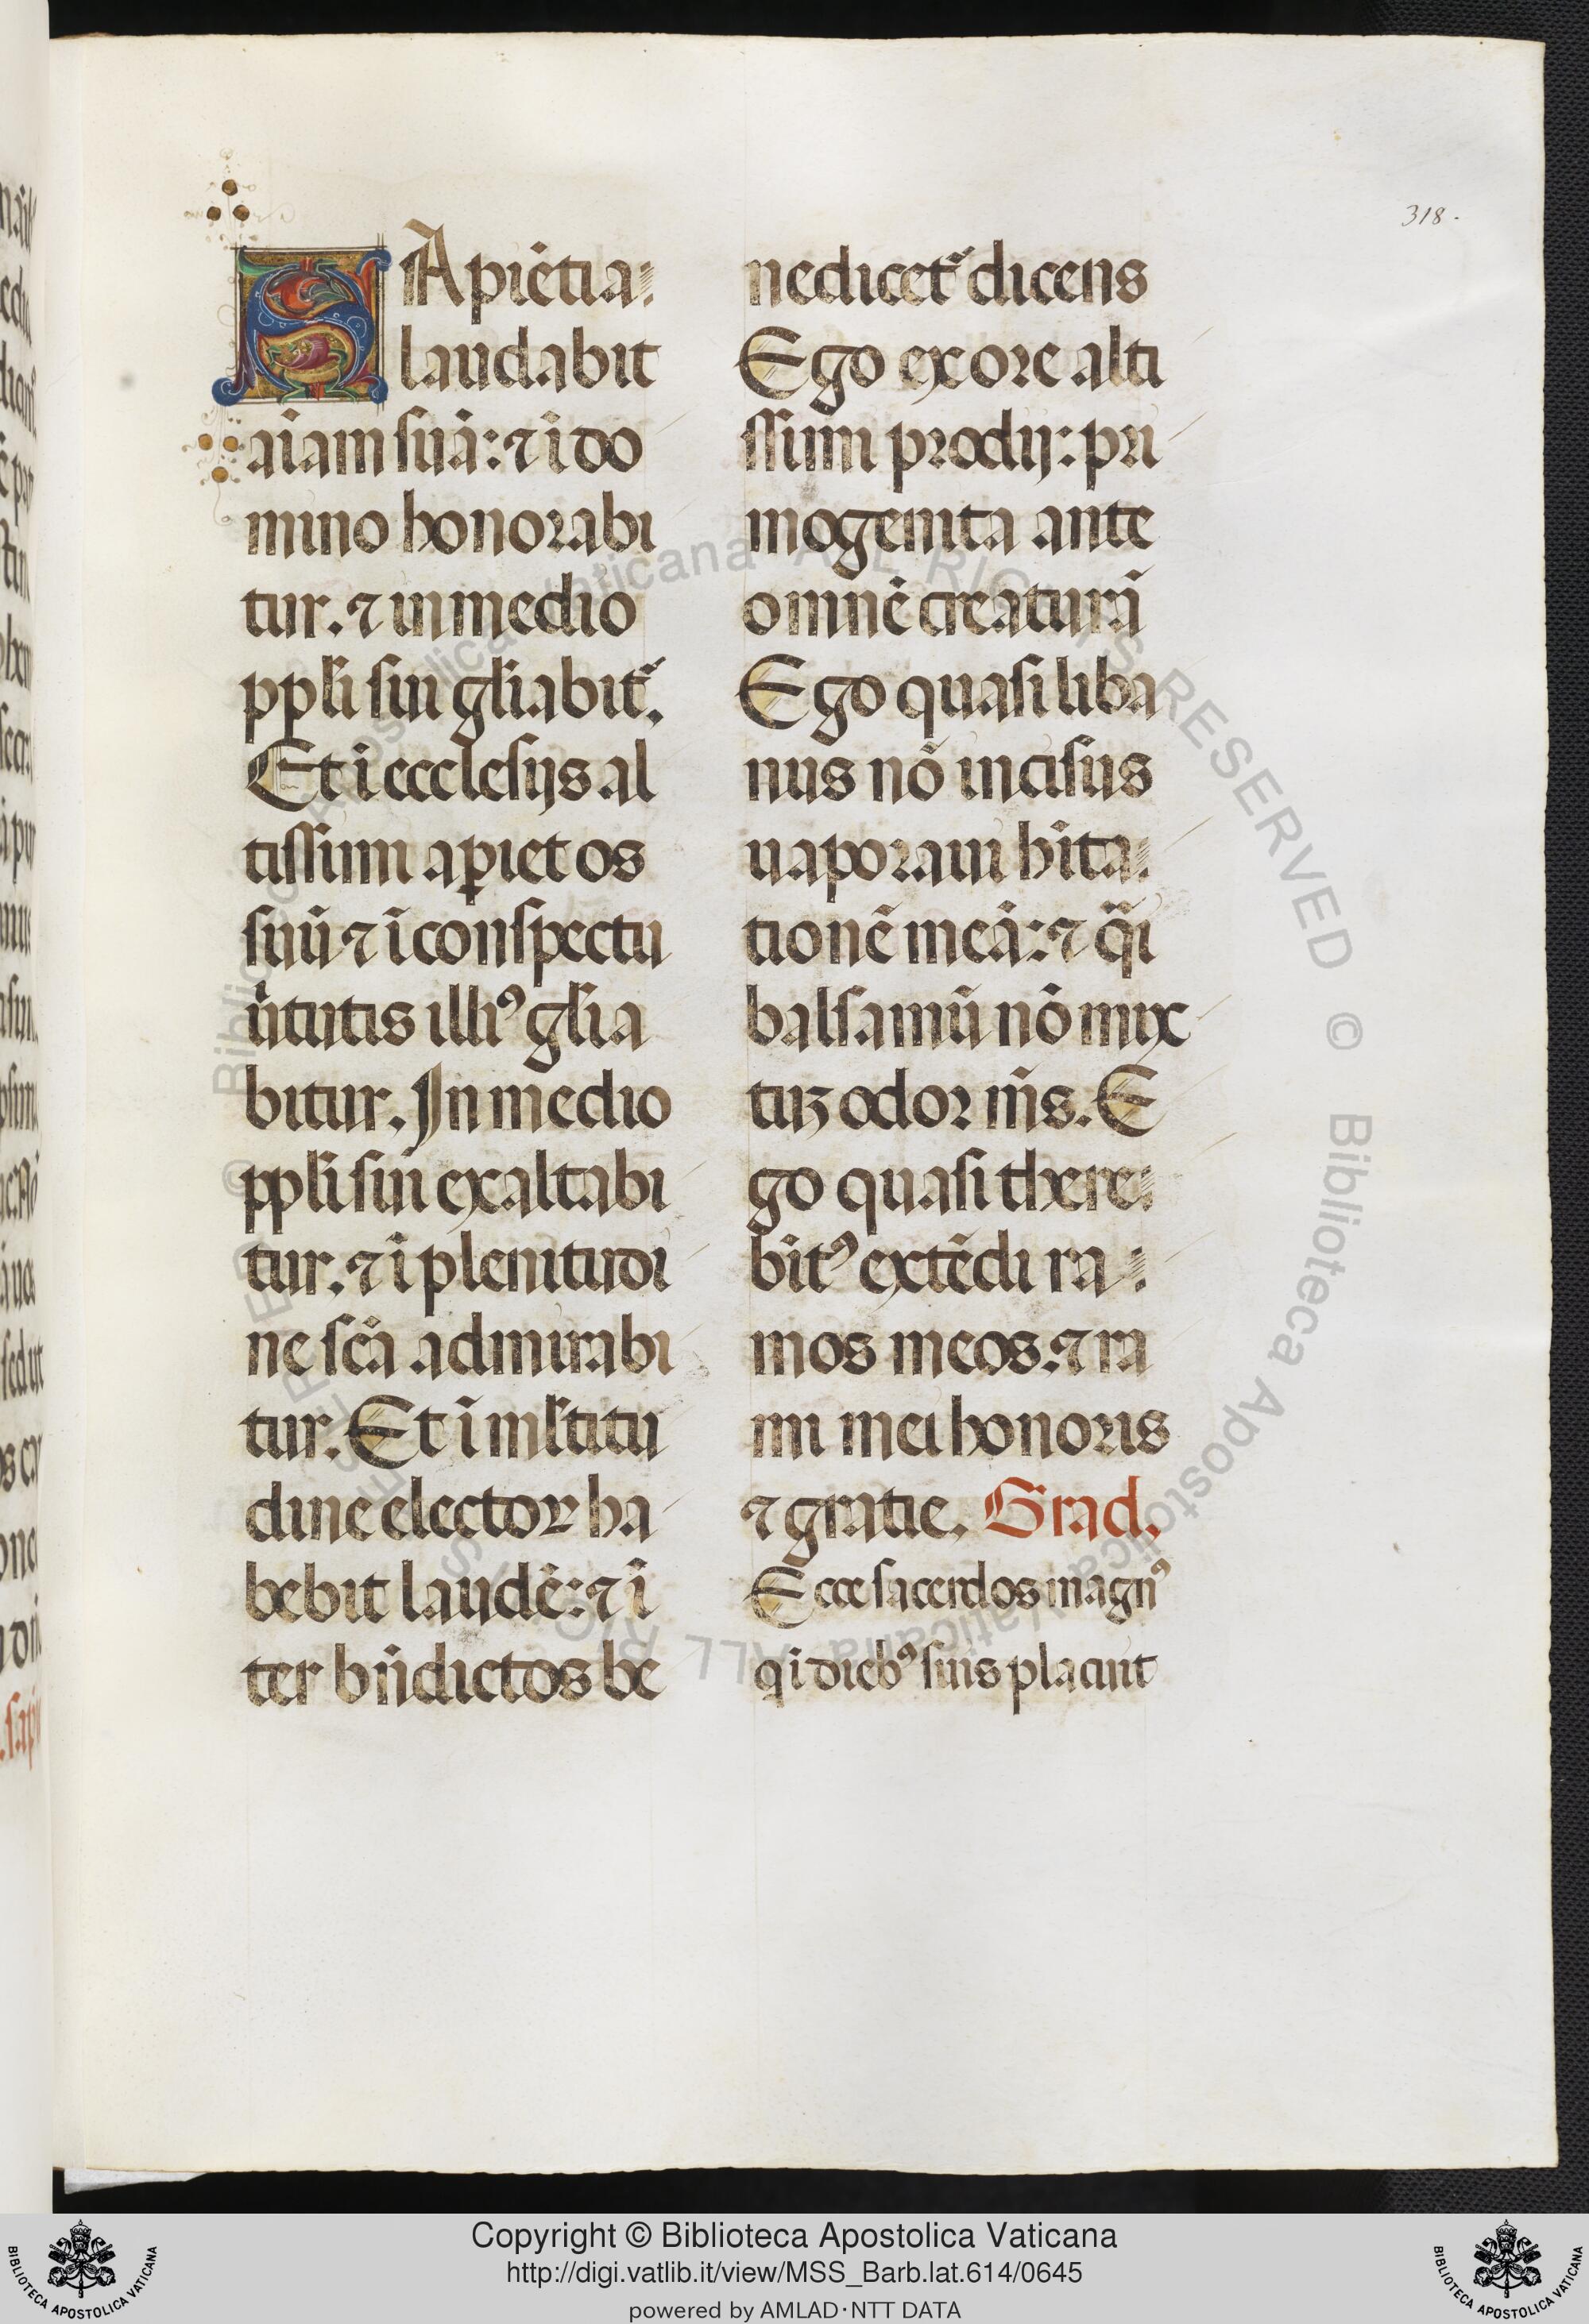 318.
SApiētia
laudabit
aīam suā: ⁊ ī do
mino honorabi
tur. ⁊ in medio
ppłi sui głiabit᷑.
Et ī ecclesijs al
tissimi aꝑiet os
suū ⁊ ī conspectu
ūtutis illiꝰ głia
bitur. In medio
ppłi sui exaltabi
tur. ⁊ ī plenitudi
ne scā admirabi
tur. Et ī młtitu
dine electoꝝ ha
bebit laudē: ⁊ ī
ter bn̄dictos be
nedicet᷑ dicens
Ego ex ore alti
ssimi prodij: pri
mogenita ante
omnē creaturā
Ego quasi liba
nus nō incisus
uaporaui hīta
tionē meā: ⁊ q̄i
balsamū nō mix
tuʒ odor m̄s. E
go quasi there
bītꝰ extēdi ra
mos meos. ⁊ ra
mi mei honoris
⁊ gratie. Grad.
Ecce sacerdos magnꝰ
qi diebꝰ suis placuit
Copyright © Biblioteca Apostolica Vaticana
http://digi.vatlib.it/view/MSS_Barb.lat.614/0645
powered by AMLAD·NTT DATA
BIBLIOTECA APOSTOLICA VATICANA
BIBLIOTECA APOSTOLICA VATICANA
© Biblioteca Apostolica Vaticana ALL RIGHTS RESERVED © Biblioteca Apostolica Vaticana ALL RIGHTS RESERVED